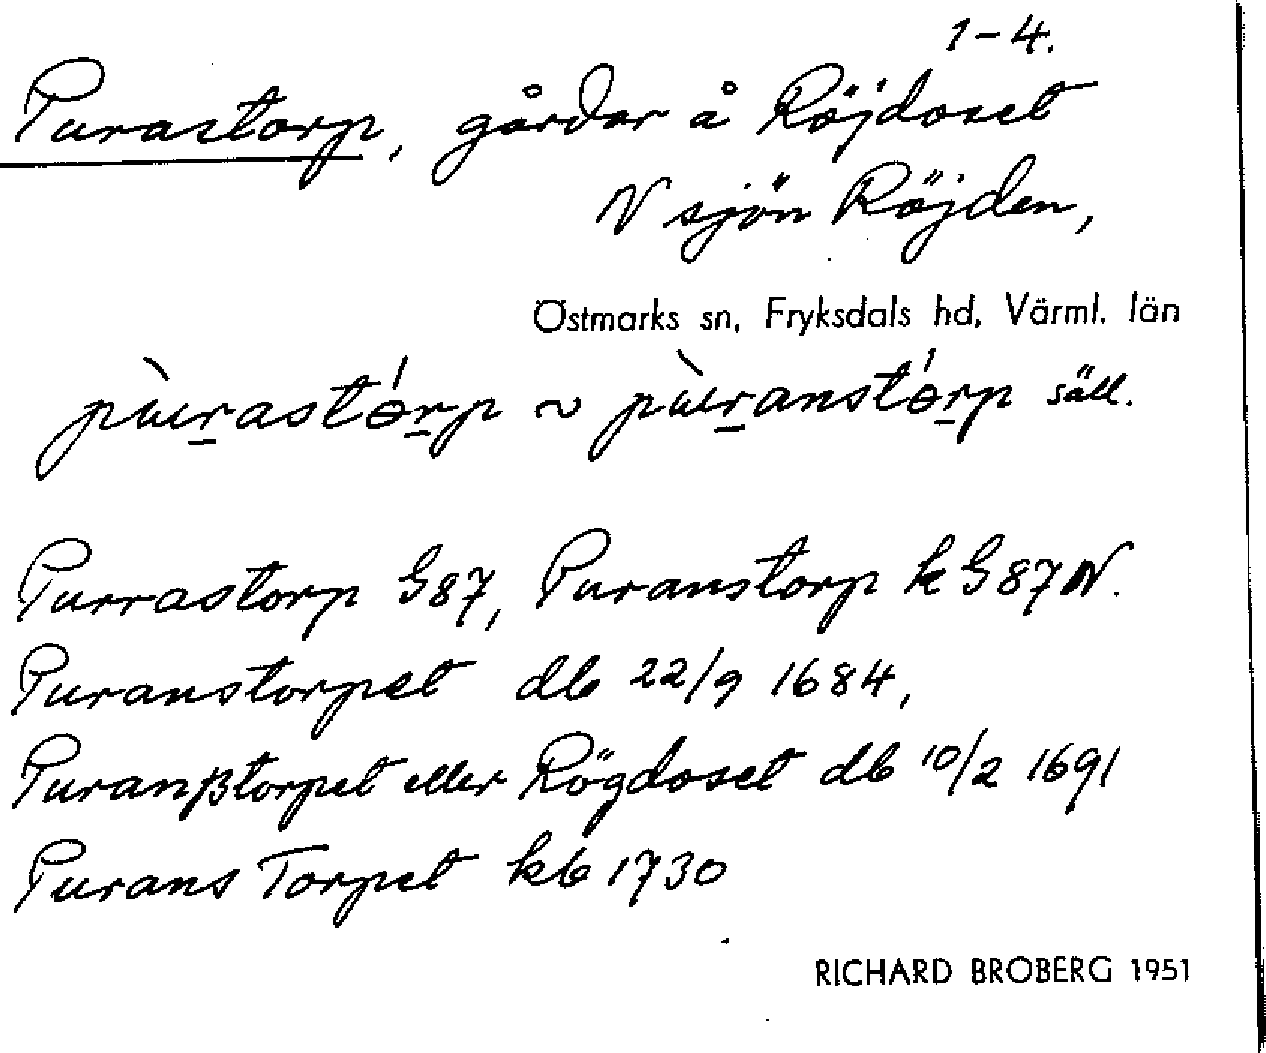 1-4.
Purastorp, gårdar å Röjdoset
N sjön Röjden,
Östmarks sn, Fryksdals hd, Värml. län
pùrastórp ~ pùranstórp säll.
Purrastorp G87, Puranstorp k G87N.
Puranstorpet db 22/9 1684,
Puranßtorpet eller Rögdoset db 10/2 1691
Purans Torpet kb 1730
RICHARD BROBERG 1951